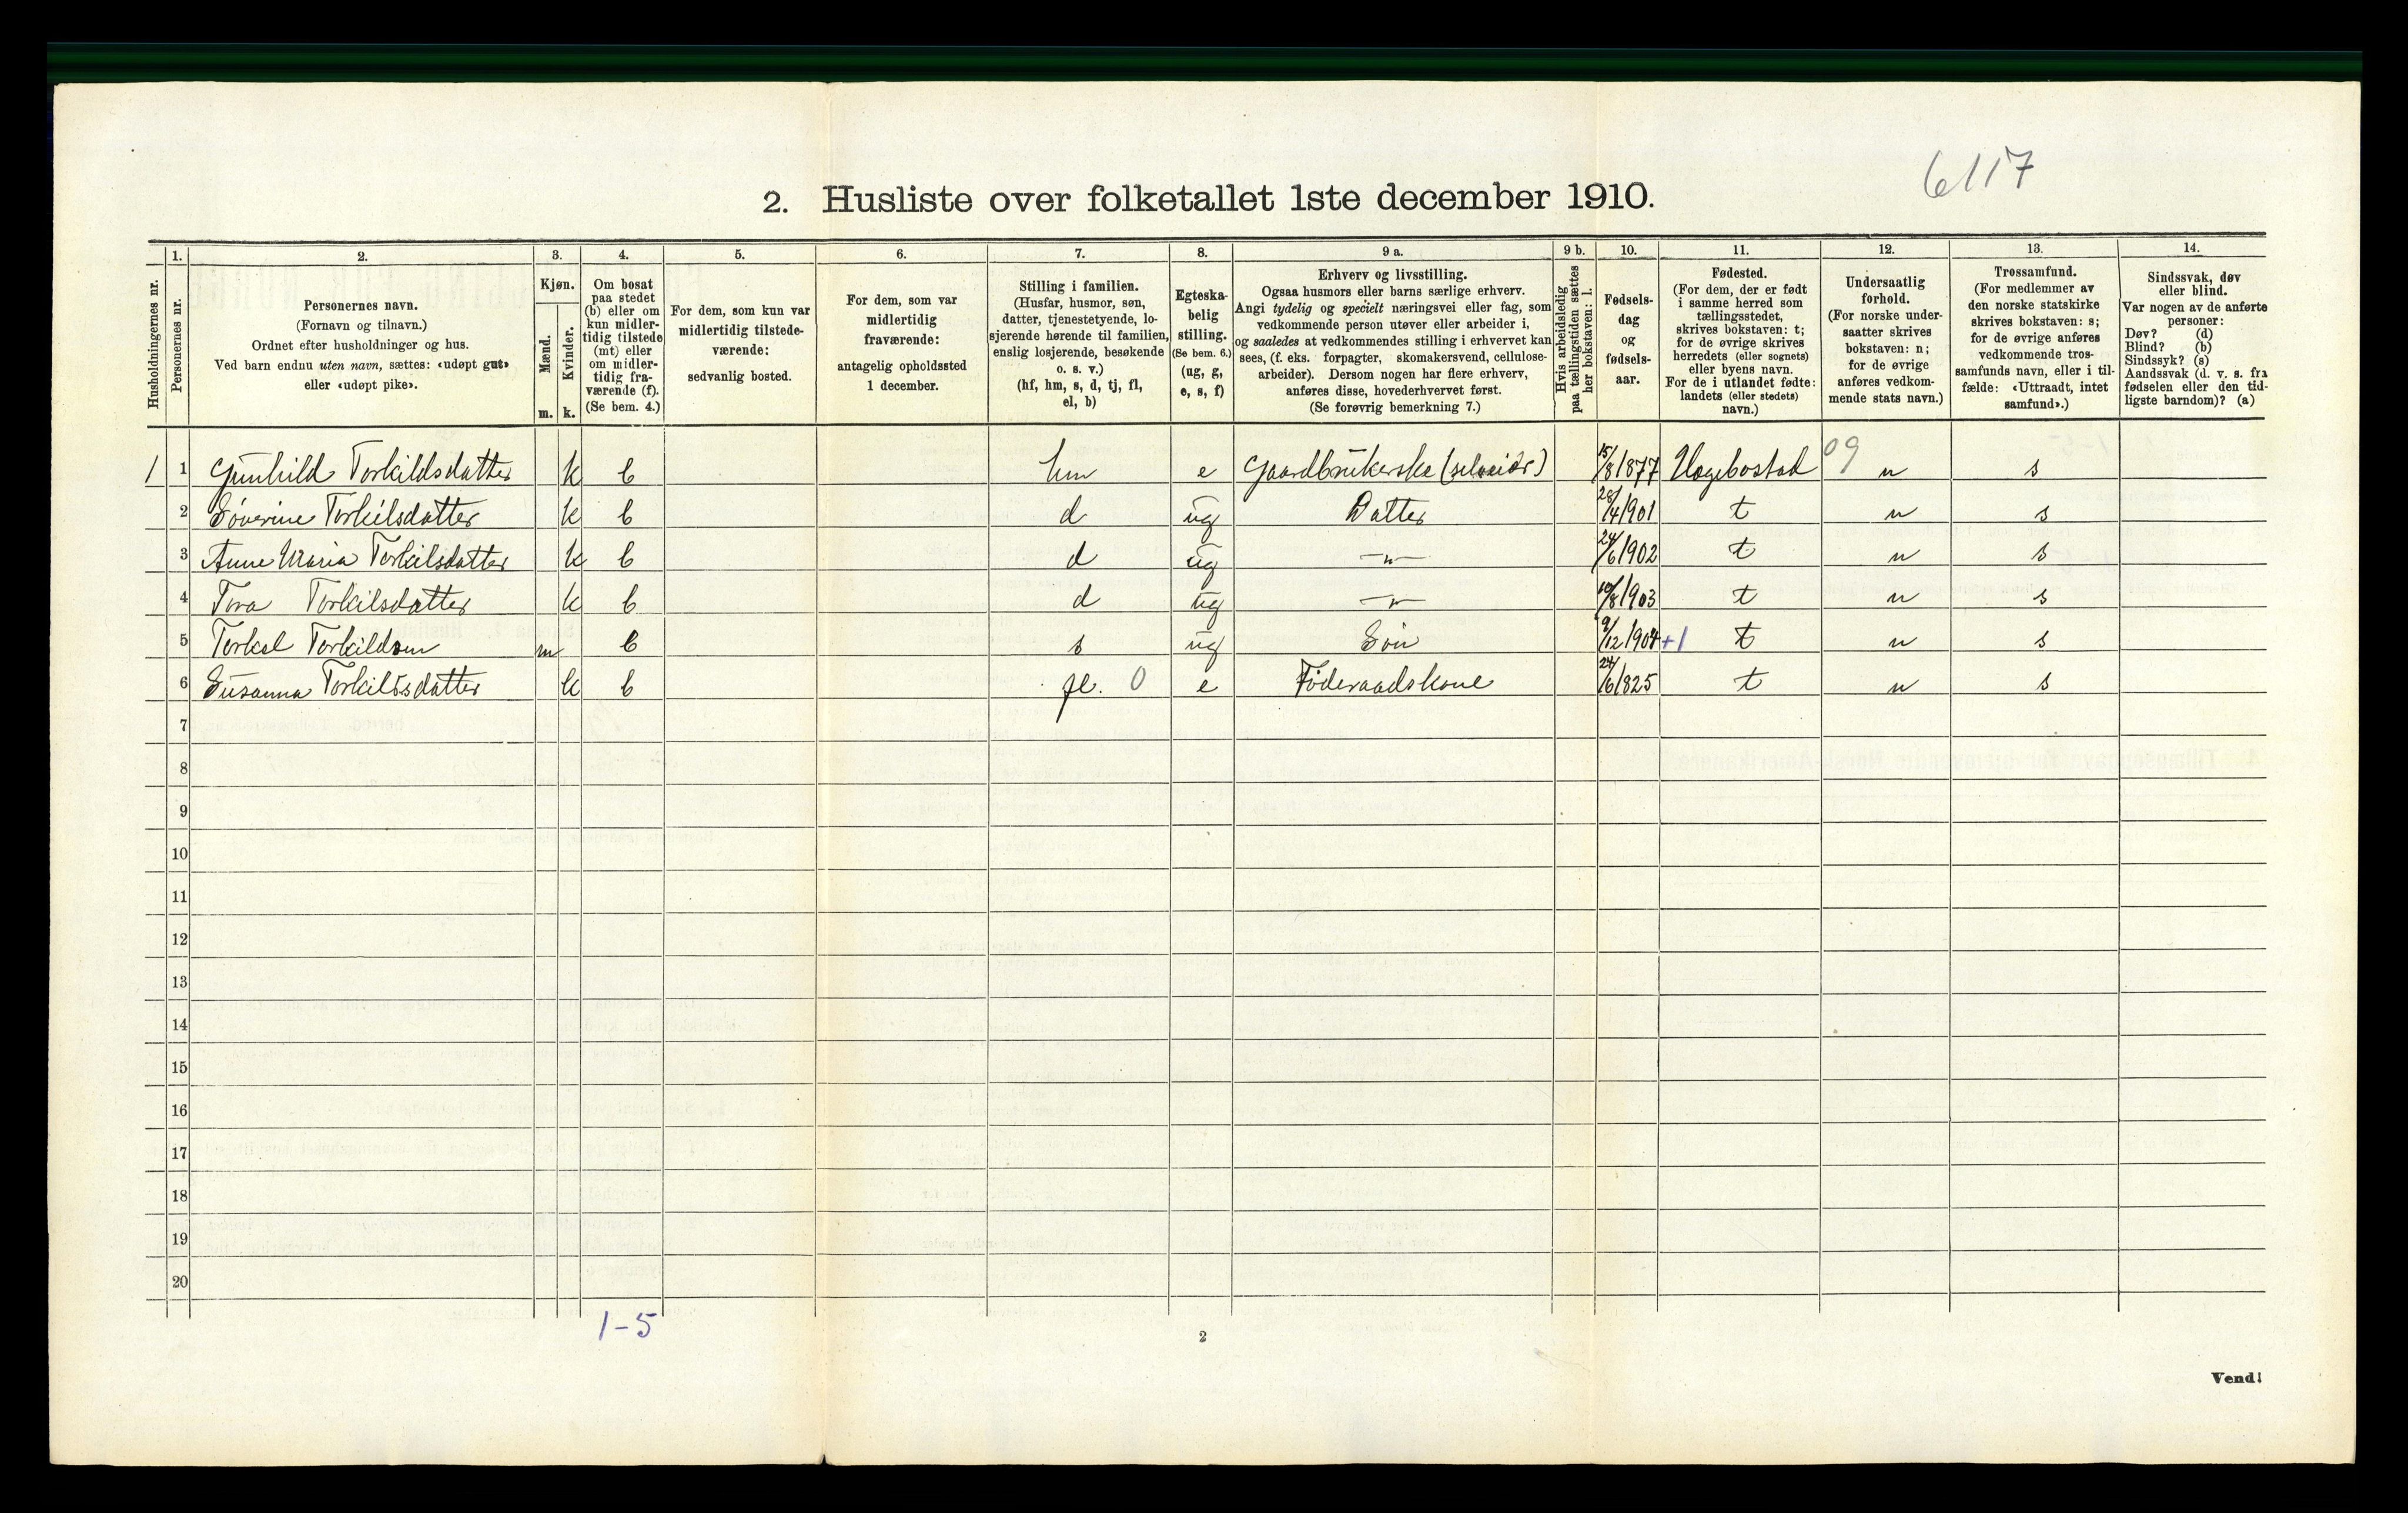 6117
2. Husliste over folketallet 1ste december 1910.
Husholdningernes nr.
1.
Personernes nr.
2.
Personernes navn.
(Fornavn og tilnavn.)
Ordnet efter husholdninger og hus.
Ved barn endnu uten navn, sættes: «udøpt gut»
eller «udøpt pike».
3.
Kjøn.
Mænd.
m.
Kvinder.
k.
4.
Om bosat
paa stedet
(b) eller om
kun midler-
tidig tilstede
(mt) eller
om midler-
tidig fra-
værende (f).
(Se bem. 4.)
5.
For dem, som kun var
midlertidig tilstede-
værende:
sedvanlig bosted.
6.
For dem, som var
midlertidig
fraværende:
antagelig opholdssted
1 december.
7.
Stilling i familien.
(Husfar, husmor, søn,
datter, tjenestetyende, lo-
sjerende hørende til familien,
enslig losjerende, besøkende
o. s. v.)
(hf, hm, s, d, tj, fl,
el, b)
8.
Egteska-
belig
stilling.
(Se bem. 6.)
(ug, g,
e, s, f)
9 a.
Erhverv og livsstilling.
Ogsaa husmors eller barns særlige erhverv.
Angi tydelig og specielt næringsvei eller fag, som
vedkommende person utøver eller arbeider i,
og saaledes at vedkommendes stilling i erhvervet kan
sees, (f. eks. forpagter, skomakersvend, cellulose-
arbeider). Dersom nogen har flere erhverv,
anføres disse, hovederhvervet først.
(Se forøvrig bemerkning 7.)
9 b.
Hvis arbeidsledig
paa tællingstiden sættes
her bokstaven: l.
10.
Fødsels-
dag
og
fødsels-
aar.
11.
Fødested.
(For dem, der er født
i samme herred som
tællingsstedet,
skrives bokstaven: t;
for de øvrige skrives
herredets (eller sognets)
eller byens navn.
For de i utlandet fødte:
landets (eller stedets)
navn.)
12.
Undersaatlig
forhold.
(For norske under-
saatter skrives
bokstaven: n;
for de øvrige
anføres vedkom-
mende stats navn.)
13.
Trossamfund.
(For medlemmer av
den norske statskirke
skrives bokstaven: s;
for de øvrige anføres
vedkommende tros-
samfunds navn, eller i til-
fælde: «Uttraadt, intet
samfund».)
14.
Sindssvak, døv
eller blind.
Var nogen av de anførte
personer:
Døv? (d)
Blind? (b)
Sindssyk? (s)
Aandssvak (d. v. s. fra
fødselen eller den tid-
ligste barndom)? (a)
1 1 Gunhild Torkildsdatter k b hm e Gaardbrukerske (selveier) 15/8 1877 Hægebostad 09 n s
2 Søverine Torkilsdatter k b d ug Datter 28/4 1901 t n s
3 Anne Maria Torkilsdatter k b d ug —"— 24/6 1902 t n s
4 Tora Torkilsdatter k b d ug —"— 10/8 1903 t n s
5 Torkel Torkildsen m b s ug Søn 9/12 1904 +1 t n s
6 Susanna Torkildsdatter k b fl. 0 e Føderaadskone 24/6 1825 t n s
7
8
9
10
11
12
13
14
15
16
17
18
19
20
1-5
2
Vend!